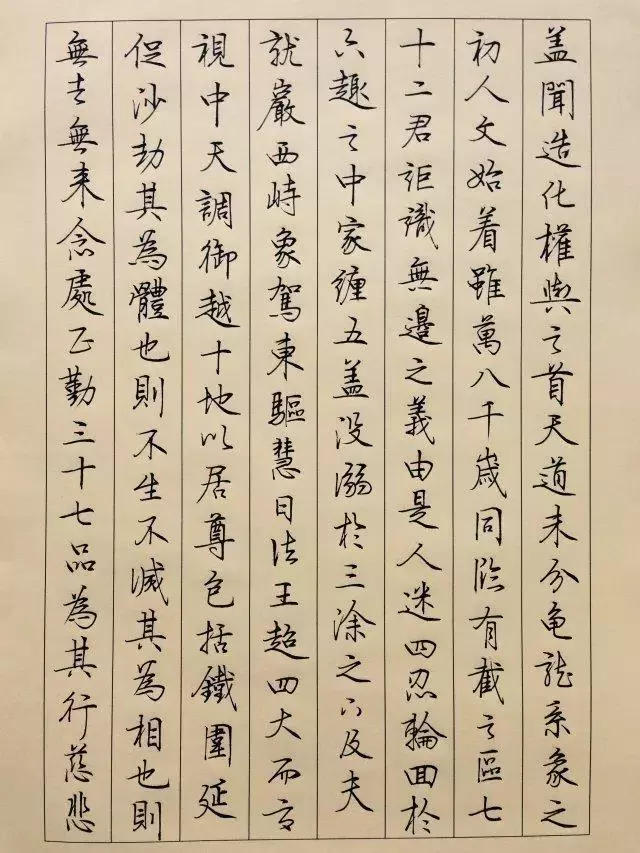 盖聞造化權輿之首天道未分龟龍系象之
初人文始着雖萬八千歲同臨有截之區七
十二君詎識無邊之義由是人迷四忍輪回於
六趣之中家纏五盖没溺於三涂之下及夫
鹫巖西峙象駕東驅慧日法王超四大而高
視中天調御越十地以居尊包括鐵圍延
促沙劫其為體也則不生不滅其為相也則
無去無来念處正勤三十七品為其行慈悲